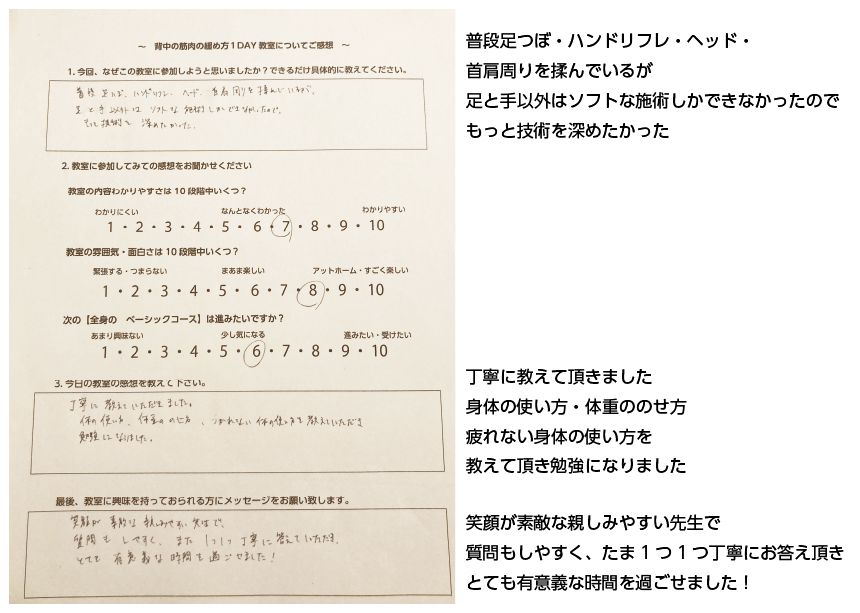 ～ 背中の筋肉の緩め方１DAY教室についてご感想 ～
1. 今回、なぜこの教室に参加しようと思いましたか？できるだけ具体的に教えてください。
普段 足つぼ、ハンドリフレ、ヘッド、首肩周りを揉んでいるが、
足と手以外は ソフトな施術しかできなかったので、
もっと技術を 深めたかった。
2. 教室に参加してみての感想をお聞かせください
教室の内容わかりやすさは 10 段階中いくつ？
わかりにくい なんとなくわかった わかりやすい
1・2・3・4・5・6・7・8・9・10
教室の雰囲気・面白さは 10 段階中いくつ？
緊張する・つまらない まあま楽しい アットホーム・すごく楽しい
1・2・3・4・5・6・7・8・9・10
次の【全身の ベーシックコース】は進みたいですか？
あまり興味ない 少し気になる 進みたい・受けたい
1・2・3・4・5・6・7・8・9・10
3. 今日の教室の感想を教えて下さい。
丁寧に 教えていただきました。
体の使い方、体重ののせ方、つかれない体の使い方を教えていただき
勉強になりました。
最後、教室に興味を持っておられる方にメッセージをお願い致します。
笑顔が 素敵な 親しみやすい先生で、
質問も しやすく、また 1つ1つ丁寧に答えていただき、
とても 有意義な時間を過ごせました！
普段足つぼ・ハンドリフレ・ヘッド・
首肩周りを揉んでいるが
足と手以外はソフトな施術しかできなかったので
もっと技術を深めたかった
丁寧に教えて頂きました
身体の使い方・体重ののせ方
疲れない身体の使い方を
教えて頂き勉強になりました
笑顔が素敵な親しみやすい先生で
質問もしやすく、たま１つ１つ丁寧にお答え頂き
とても有意義な時間を過ごせました！